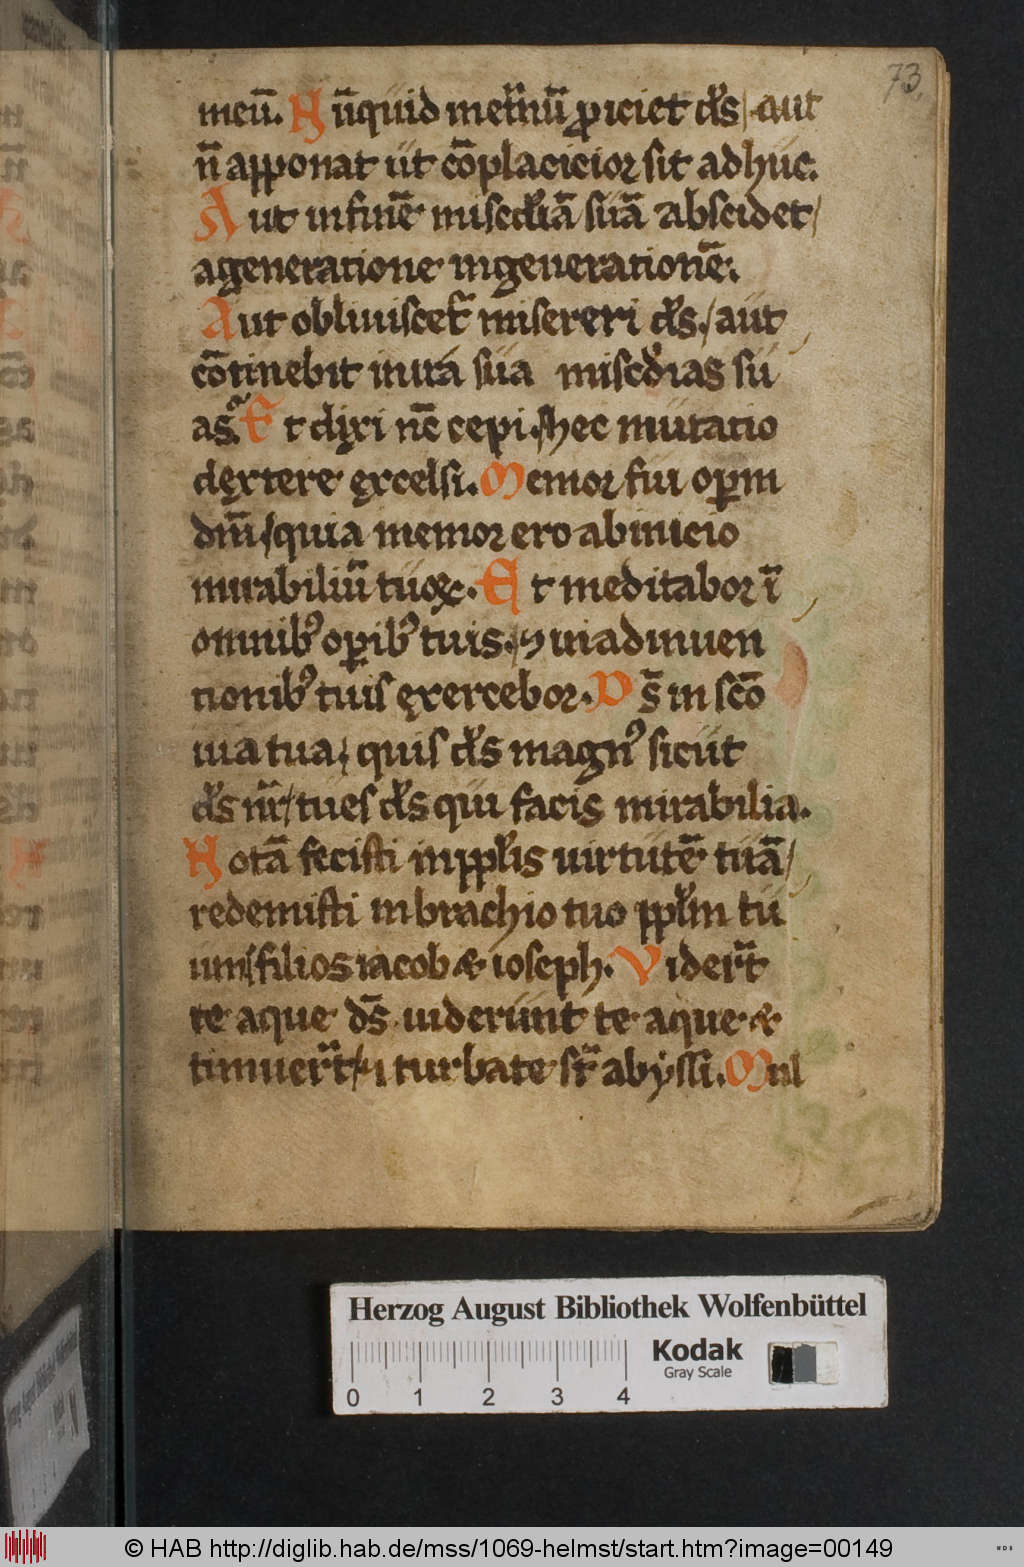 73.
meū. Nūquid met̄nū ꝓiciet ds̄ / aut
n̄ apponat ut cōplacicior sit adhuc.
Aut in finē misc̄diā suā abscidet /
a generatione in generationē.
Aut obliuiscet᷑ misereri ds̄. / aut
cōtinebit in ira sua misc̄dias su
as. Et dixi nc̄ cepi. / hec mutatio
dęxtere ęxcelsi. Memor fui oꝑm
dn̄i / quia memor ero ab inicio
mirabiliū tuoꝝ. Et meditabor ī
omnibꝰ oꝑibꝰ tuis. / ⁊ in adinuen
tionibꝰ tuis ęxercebor. Ds̄ in sc̄o
uia tua, quis ds̄ magnꝰ sicut
ds̄ nr̄ / tu es ds̄ qui facis mirabilia.
Notā fecisti in ppl̄is uirtutē tuā /
redemisti in brachio tuo ppl̄m tu
um / filios iacob & ioseph. Vider̄t
te aque ds̄ uiderunt te aque &
timuer̄t / ⁊ turbate st̄ abyssi. Mul
Herzog August Bibliothek Wolfenbüttel
Kodak
Gray Scale
0 1 2 3 4
© HAB http://diglib.hab.de/mss/1069-helmst/start.htm?image=00149